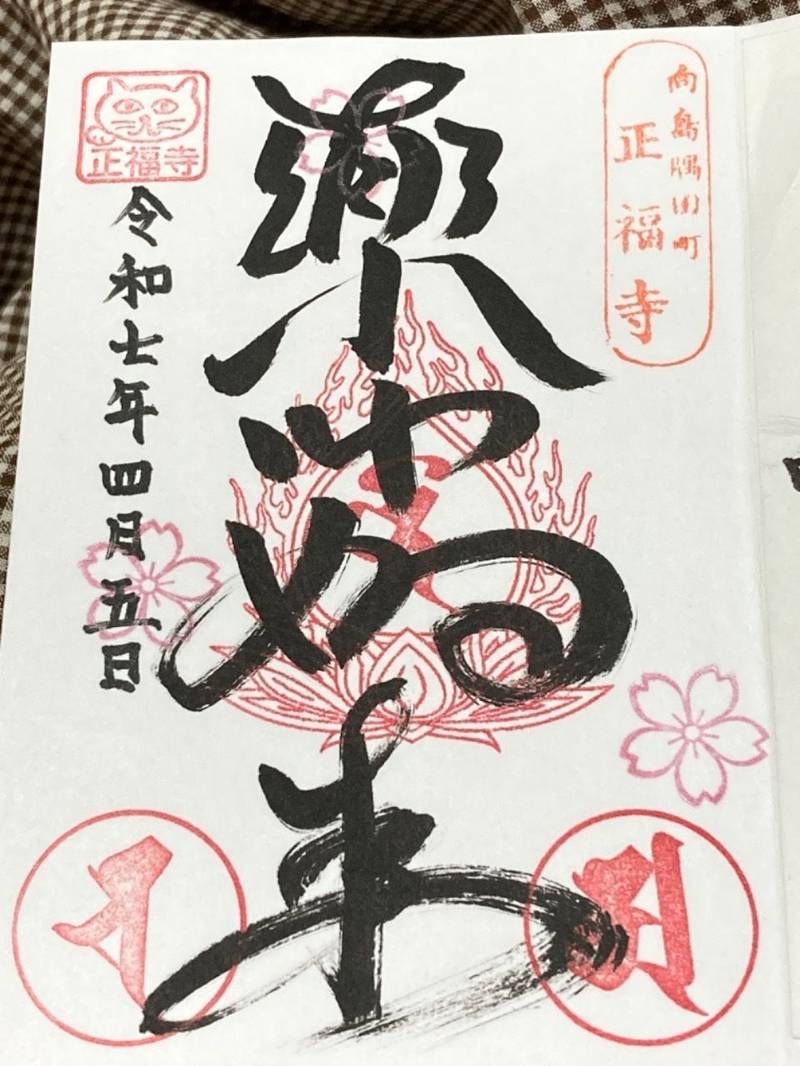 向島隅田町
正福寺
薬師如来
正福寺
令和七年四月五日